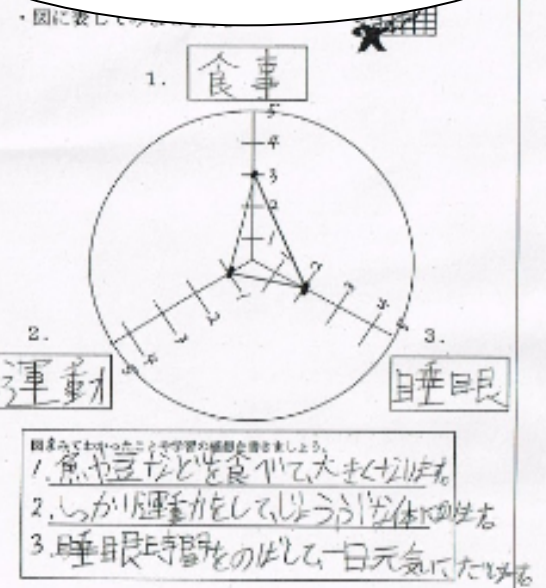 ・図に表して
1.
食事
5
4
3
2
1
1 2 3 4 5
1 2 3 4 5
2.
運動
3.
睡眠
図をみてわかったことや学習の感想を書きましょう。
1. 魚や豆などを食べて、大きくなります。
2. しっかり運動をして、じょうぶな体になります。
3. 睡眠時間をのばして、一日元気に